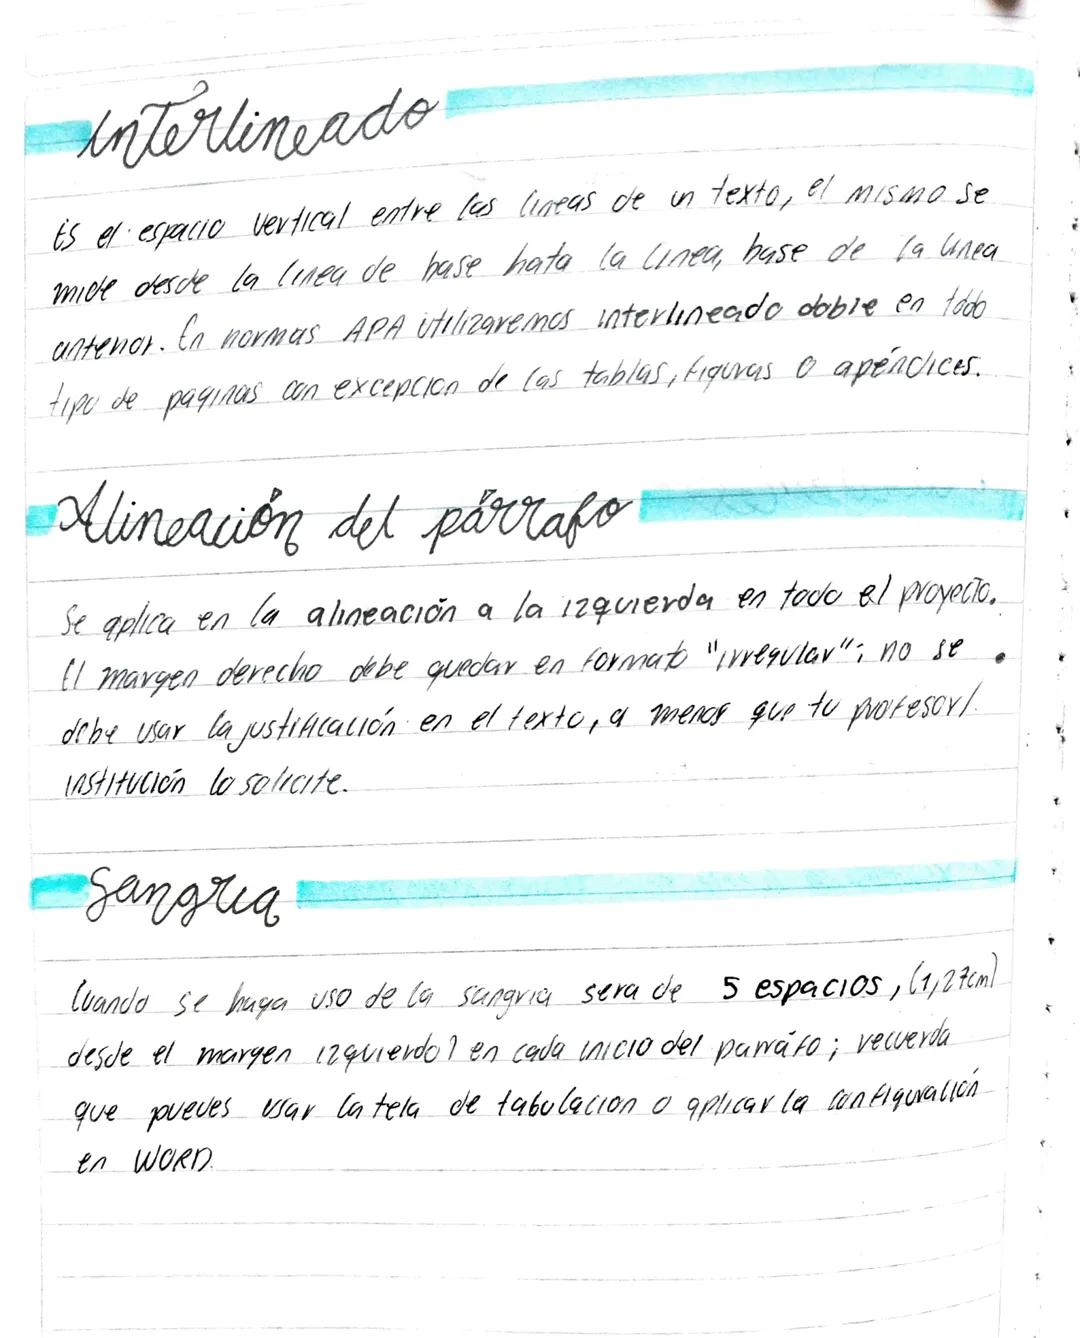 Interlineado
Es el espacio vertical entre las lineas de un texto, el mismo se
mide desde la linea de base hata la linea, base de la linea
anterior. En normas APA utilizaremos interlineado doble en todo
tipo de paginas con excepcion de las tablas, figuras o apéndices.
Alineación del párrafo
Se aplica en la alineación a la izquierda en todo el proyecto.
El margen derecho debe quedar en formato "irregular"; no se
debe usar la justificación en el texto, a menos que tu profesor/
institución lo solicite.
Sangria
Cuando se haga uso de la sangria sera de 5 espacios, (1,27cm)
desde el margen izquierdo) en cada inicio del parráfo; recuerda
que puedes usar la tela de tabulacion o aplicar la configuración
en WORD.